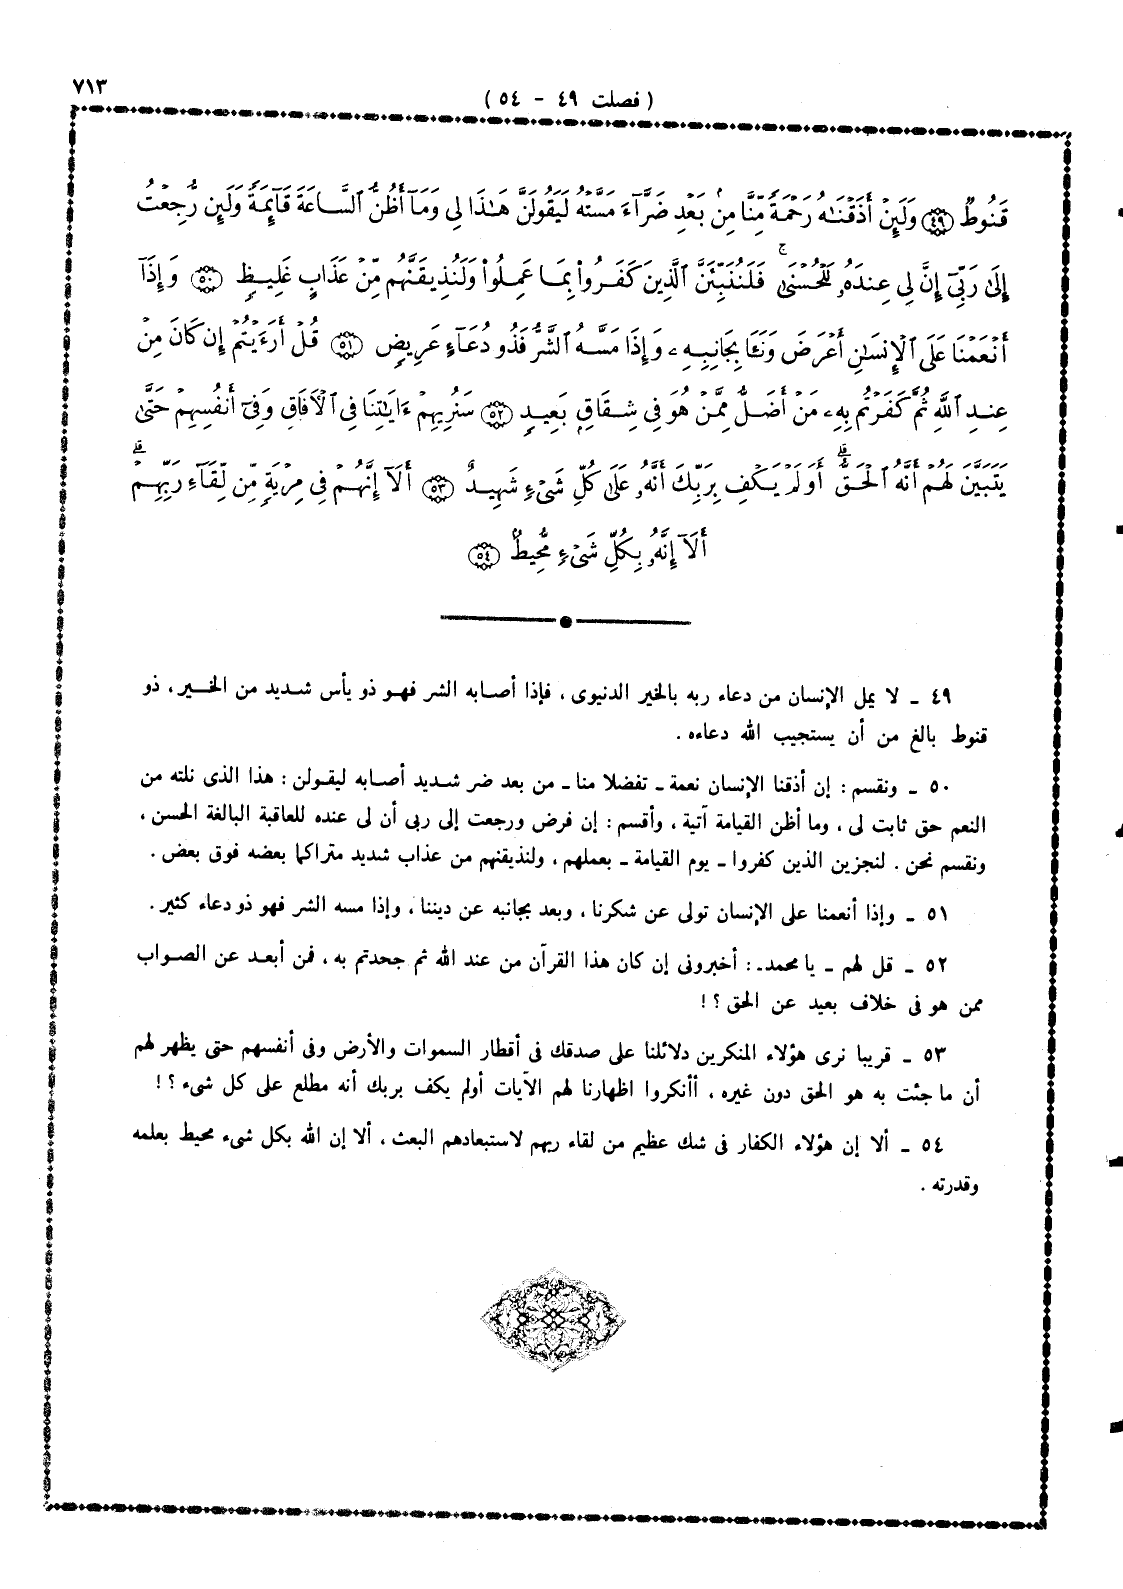 ٧١٣
( فصلت ٤٩ - ٥٤ )
قَنُوطٌ ٤٩ وَلَئِنْ أَذَقْنَٰهُ رَحْمَةً مِّنَّا مِنۢ بَعْدِ ضَرَّآءَ مَسَّتْهُ لَيَقُولَنَّ هَٰذَا لِى وَمَآ أَظُنُّ ٱلسَّاعَةَ قَآئِمَةً وَلَئِن رُّجِعْتُ
إِلَىٰ رَبِّىٓ إِنَّ لِى عِندَهُۥ لَلْحُسْنَىٰ ۚ فَلَنُنَبِّئَنَّ ٱلَّذِينَ كَفَرُوا۟ بِمَا عَمِلُوا۟ وَلَنُذِيقَنَّهُم مِّنْ عَذَابٍ غَلِيظٍ ٥٠ وَإِذَآ
أَنْعَمْنَا عَلَى ٱلْإِنسَٰنِ أَعْرَضَ وَنَـَٔا بِجَانِبِهِۦ وَإِذَا مَسَّهُ ٱلشَّرُّ فَذُو دُعَآءٍ عَرِيضٍ ٥١ قُلْ أَرَءَيْتُمْ إِن كَانَ مِنْ
عِندِ ٱللَّهِ ثُمَّ كَفَرْتُم بِهِۦ مَنْ أَضَلُّ مِمَّنْ هُوَ فِى شِقَاقٍۭ بَعِيدٍ ٥٢ سَنُرِيهِمْ ءَايَٰتِنَا فِى ٱلْأٓفَاقِ وَفِىٓ أَنفُسِهِمْ حَتَّىٰ
يَتَبَيَّنَ لَهُمْ أَنَّهُ ٱلْحَقُّ ۗ أَوَلَمْ يَكْفِ بِرَبِّكَ أَنَّهُۥ عَلَىٰ كُلِّ شَىْءٍ شَهِيدٌ ٥٣ أَلَآ إِنَّهُمْ فِى مِرْيَةٍ مِّن لِّقَآءِ رَبِّهِمْ ۗ
أَلَآ إِنَّهُۥ بِكُلِّ شَىْءٍ مُّحِيطٌۢ ٥٤
٤٩ - لا يمل الإنسان من دعاء ربه بالخير الدنيوى ، فإذا أصابه الشر فهو ذو يأس شديد من الخير ، ذو
قنوط بالغ من أن يستجيب الله دعاءه .
٥٠ - ونقسم : إن أذقنا الإنسان نعمة - تفضلا منا - من بعد ضر شديد أصابه ليقولن : هذا الذى نلته من
النعم حق ثابت لى ، وما أظن القيامة آتية ، وأقسم : إن فرض ورجعت إلى ربى أن لى عنده للعاقبة البالغة الحسن ،
ونقسم نحن . لنجزين الذين كفروا - يوم القيامة - بعملهم ، ولنذيقنهم من عذاب شديد متراكما بعضه فوق بعض .
٥١ - وإذا أنعمنا على الإنسان تولى عن شكرنا ، وبعد بجانبه عن ديننا ، وإذا مسه الشر فهو ذو دعاء كثير .
٥٢ - قل لهم - يا محمد - : أخبرونى إن كان هذا القرآن من عند الله ثم جحدتم به ، فمن أبعد عن الصواب
ممن هو فى خلاف بعيد عن الحق ؟ !
٥٣ - قريبا نرى هؤلاء المنكرين دلائلنا على صدقك فى أقطار السموات والأرض وفى أنفسهم حتى يظهر لهم
أن ما جئت به هو الحق دون غيره ، أأنكروا اظهارنا لهم الآيات أولم يكف بربك أنه مطلع على كل شىء ؟ !
٥٤ - ألا إن هؤلاء الكفار فى شك عظيم من لقاء ربهم لاستبعادهم البعث ، ألا إن الله بكل شىء محيط بعلمه
وقدرته .